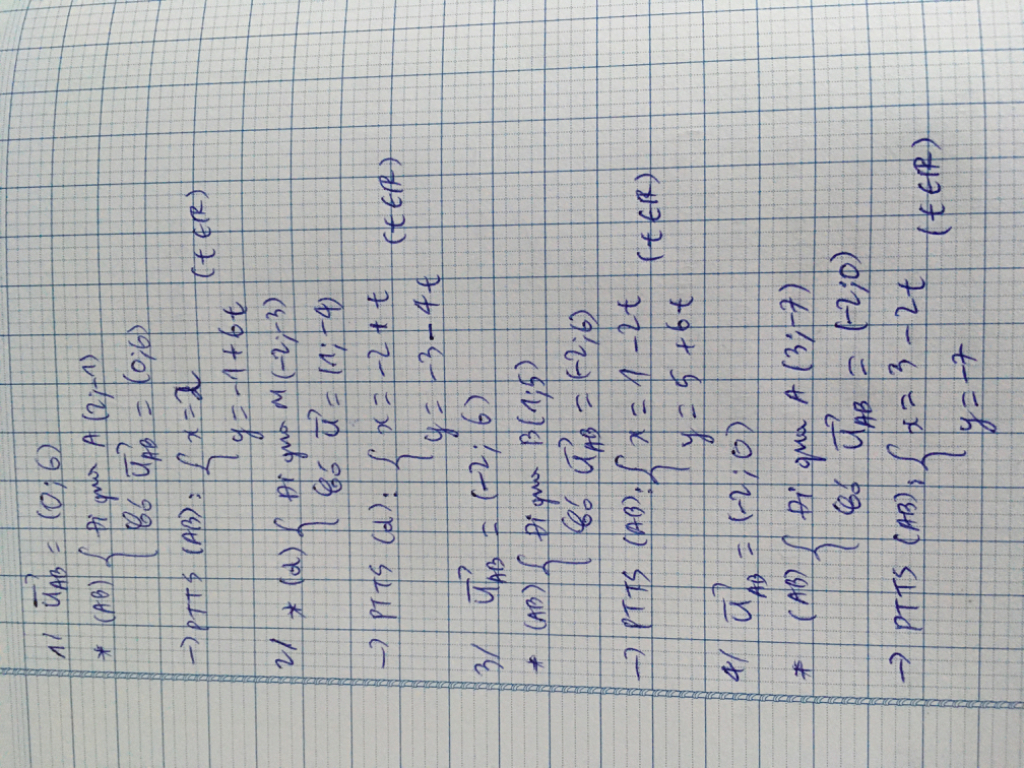 1/ u⃗AB = (0; 6)
* (AB) { đi qua A (2; -1)
có u⃗AB = (0; 6)
→ PTTS (AB): { x = 2
y = -1 + 6t (t ∈ R)
2/ * (d) { đi qua M (-2; -3)
có u⃗ = (1; -4)
→ PTTS (d): { x = -2 + t
y = -3 - 4t (t ∈ R)
3/ u⃗AB = (-2; 6)
* (AB) { đi qua B (1; 5)
có u⃗AB = (-2; 6)
→ PTTS (AB): { x = 1 - 2t
y = 5 + 6t (t ∈ R)
4/ u⃗AB = (-2; 0)
* (AB) { đi qua A (3; -7)
có u⃗AB = (-2; 0)
→ PTTS (AB): { x = 3 - 2t
y = -7 (t ∈ R)